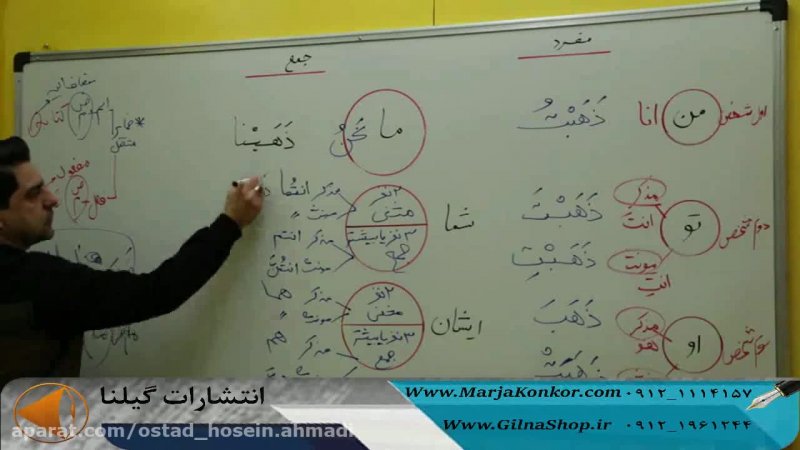 مفرد
جمع
اول شخص
من
انا
ذَهَبْتُ
ما
نَحْنُ
ذَهَبْنا
دوم شخص
تو
مذکر
انتَ
ذَهَبْتَ
مونث
انتِ
ذَهَبْتِ
شما
۲ نفر
مثنی
مذکر
انتُما
مونث
۳ نفر یا بیشتر
جمع
مذکر
انتم
مونث
انتُنَّ
سوم شخص
او
مذکر
هو
ذَهَبَ
ذَهَبَتْ
ایشان
۲ نفر
مذکر
هما
مونث
۳ نفر یا بیشتر
جمع
مذکر
هم
مضاف الیه
اسم
کتاب
ضمایر
متصل
مفعول
فعل
انتشارات گیلنا
www.MarjaKonkor.com ۰۹۱۲_۱۱۱۴۱۵۷
www.GilnaShop.ir ۰۹۱۲_۱۹۶۱۲۴۴
aparat.com/ostad_hosein.ahmadi